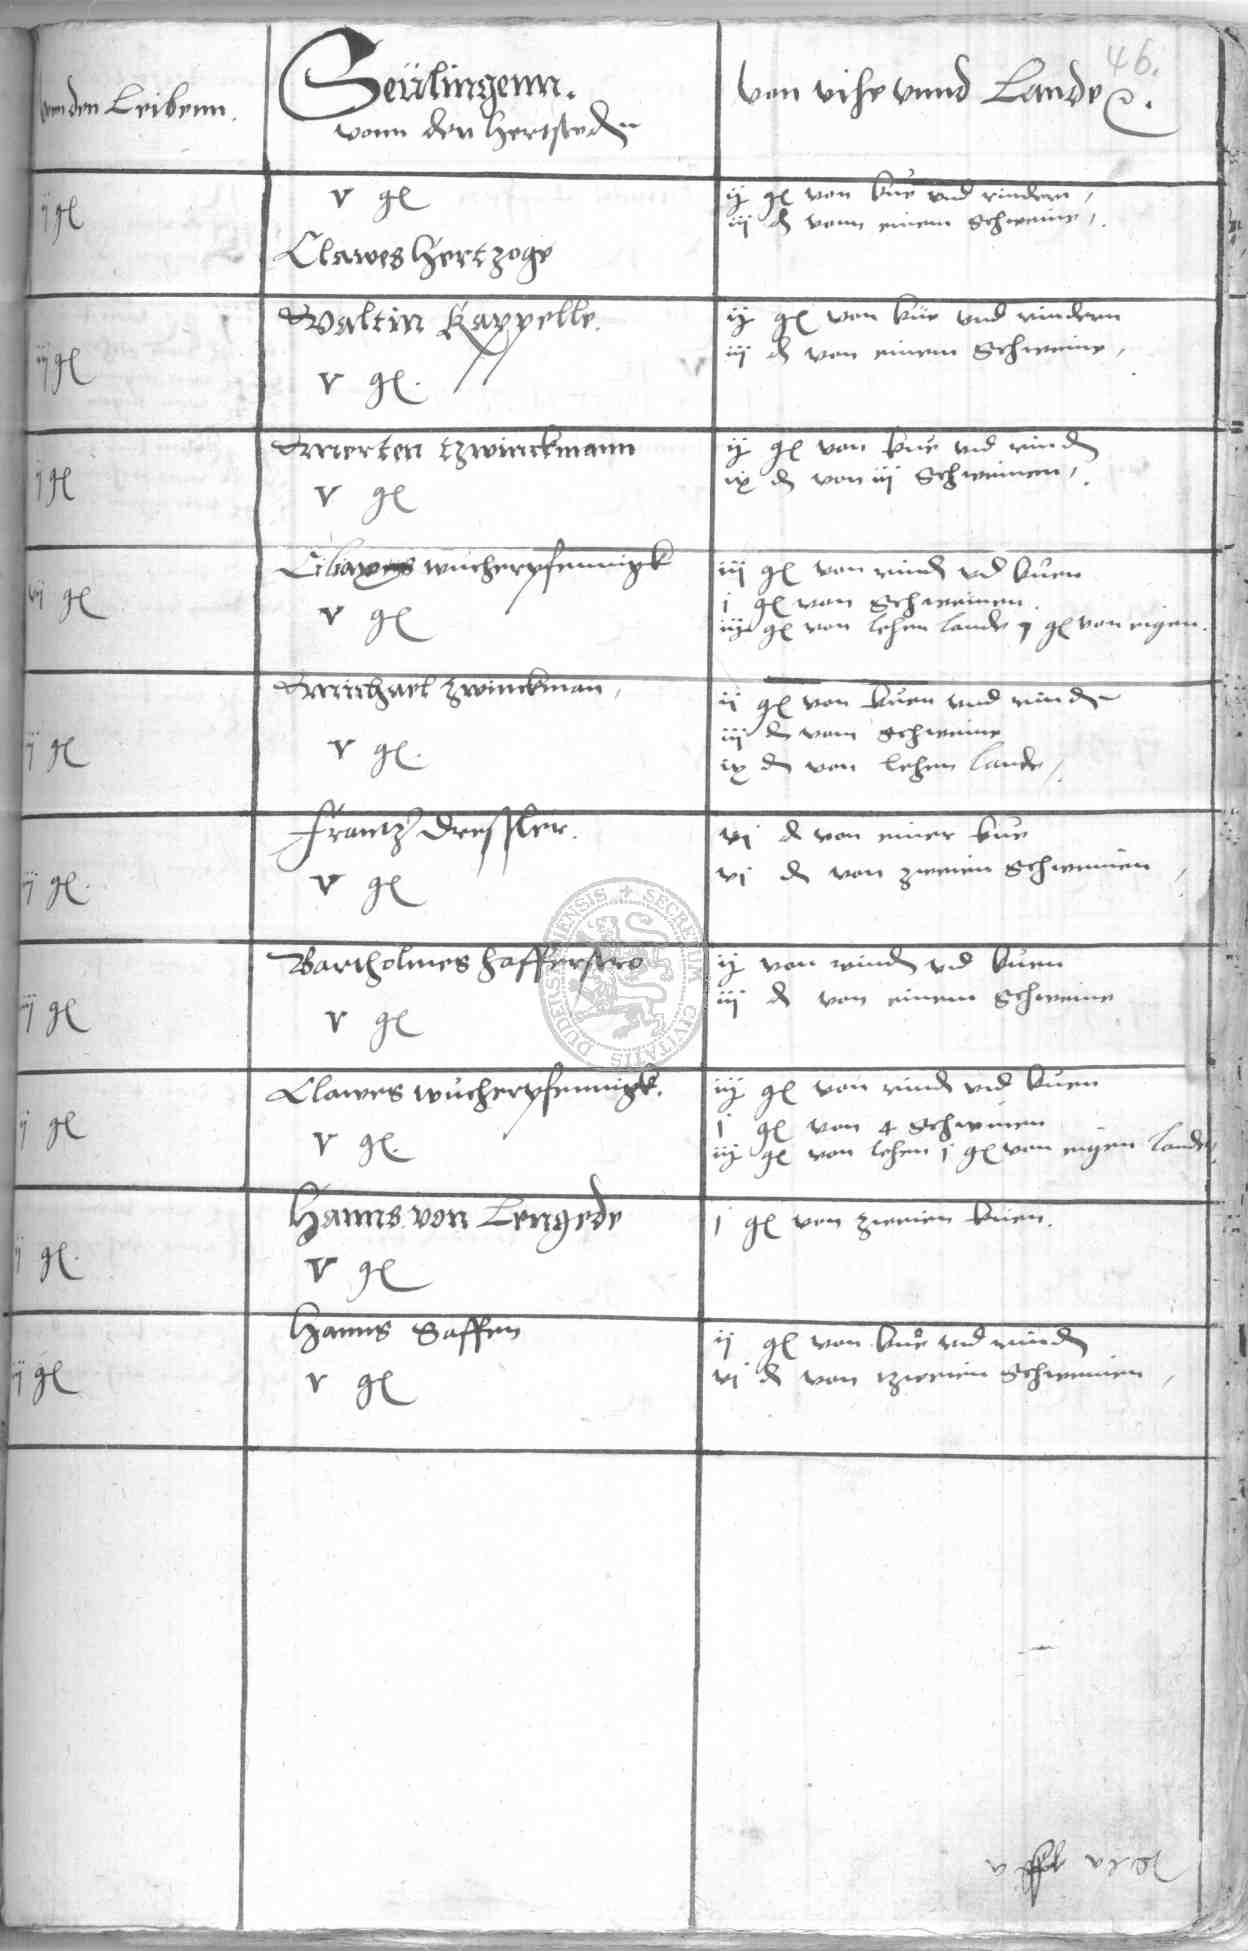 46.
von den Leibenn.
Seülingenn.
vonn den Hertsteden
von vihe vnnd Lande
ij gl
v gl
Clawes Hertzoge
ij gl von küe vnd rindern,
iij d vonn einem Schweine,
ij gl
Valtin Kappelle.
v gl.
ij gl von küe vnd rindern
iij d von einem Schweine,
ij gl
Merten tzwinckmann
v gl
ij gl von küe vnd rind
ix d von iij Schweinen,
vj gl
wucherpfennigk
v gl
iij gl von rind vnd küen
j gl von Schweinen.
iij gl von lehen lande j gl von eigen.
ij gl
Michael zwinckman,
v gl.
ij gl von küen vnd rinder
iij d vom Schweine
ix d von lehen lande,
ij gl.
Frantz dressler.
v gl
vj d von einer küe
vj d von zweien Schweinen,
ij gl
Bartholmes Hafferstro
v gl
ij von rind vnd küen
iij d von einem Schweine
ij gl
Clawes wucherpfennigk.
v gl.
iij gl von rind vnd küen
j gl von 4 Schweinen
iij gl von lehen j gl von eigen lande,
ij gl.
Hanns von Lengede
v gl
j gl von zweien küen.
ij gl
Hanns Saffen
v gl
ij gl von küe vnd rind
vj d von tzweien Schweinen,
DUDERSTADENSIS SECRETUM CIVITATIS